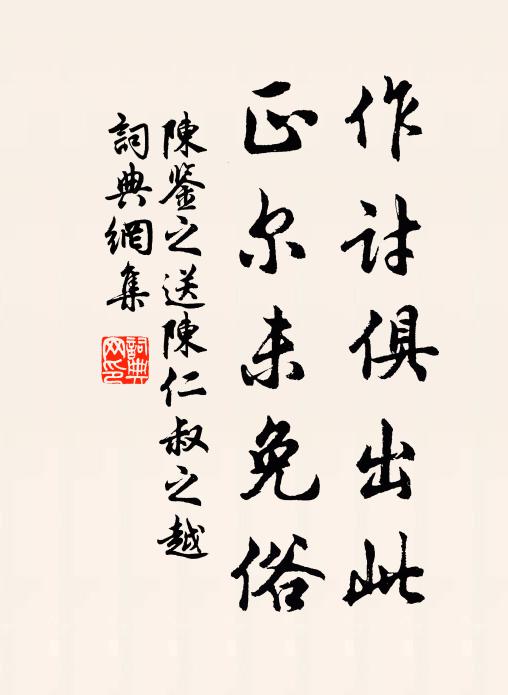 作计俱出此
正尔未免俗
陳鉴之送陳仁叔之越
詞典網集
詞典
网印